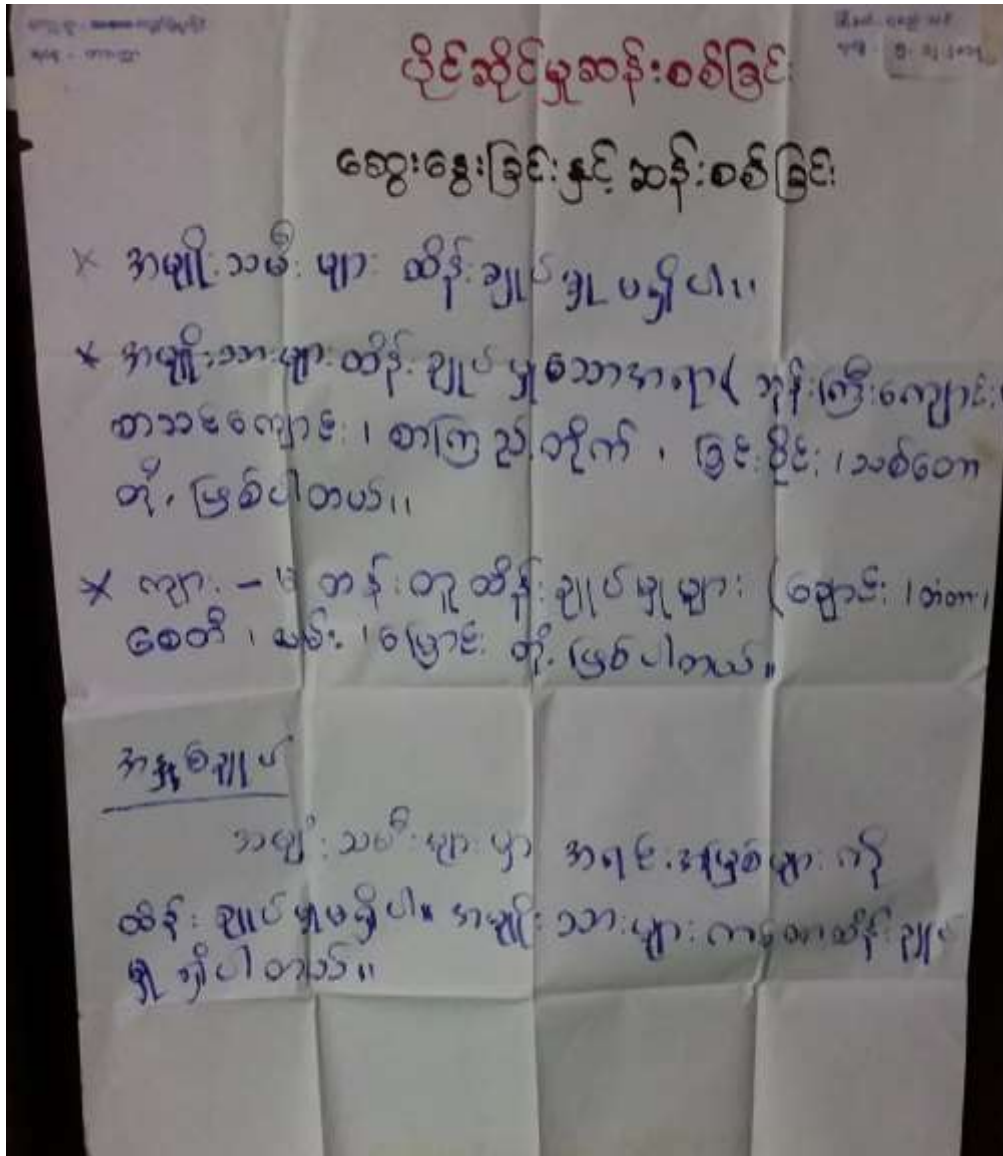 ပိုင်ဆိုင်မှုဆန်းစစ်ခြင်း
ဆွေးနွေးခြင်းနှင့် ဆန်းစစ်ခြင်း
× အမျိုးသမီးများ ထိန်းချုပ်မှုမရှိပါ။
* အမျိုးသားများထိန်းချုပ်မှုသောအရာ( ဘုန်းကြီးကျောင်း၊
စာသင်ကျောင်း၊ စာကြည့်တိုက်၊ ခြင်းဝိုင်း၊ သစ်တော
တို့ ဖြစ်ပါတယ်။
* ကျား - မ တန်းတူထိန်းချုပ်မှုများ (ချောင်း၊ တံတား၊
စေတီ၊ လမ်း၊ မြောင်း တို့ ဖြစ်ပါတယ်။
အနှစ်ချုပ်
အမျိုးသမီးများမှာ အရင်းအမြစ်များကို
ထိန်းချုပ်မှုမရှိပါ။ အမျိုးသားများကသာထိန်းချုပ်
မှုရှိပါတယ်။